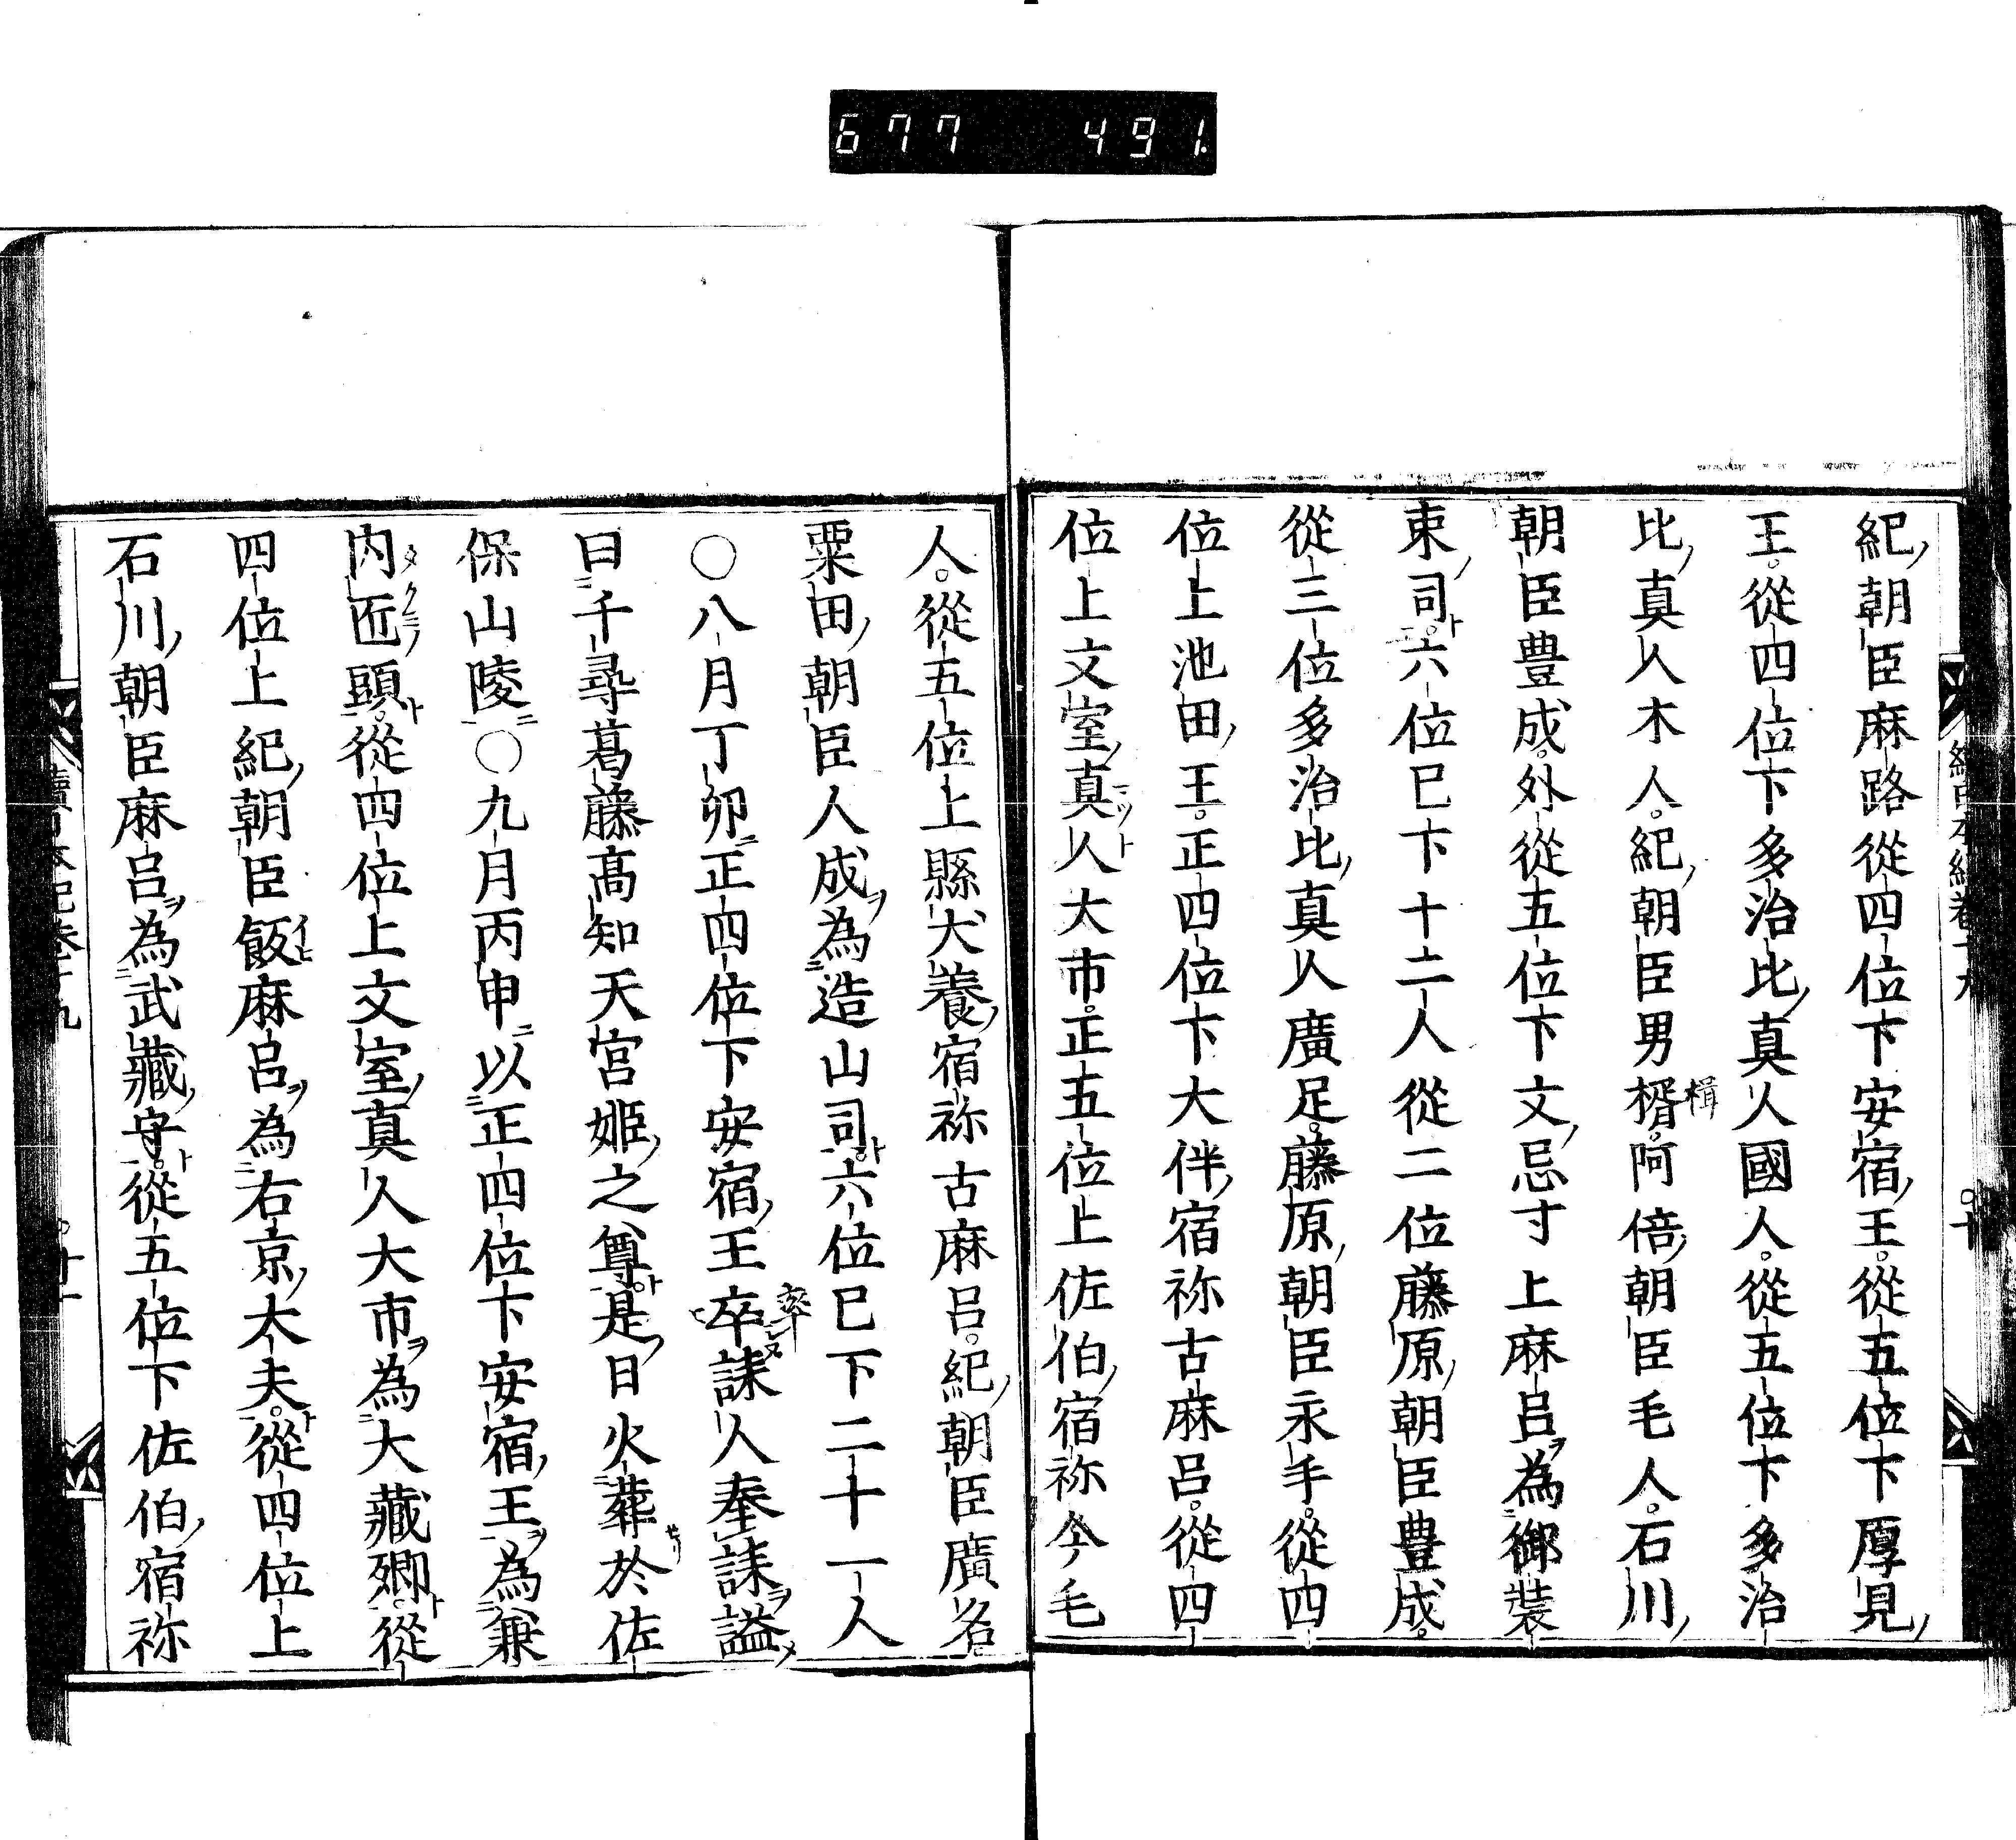 677 491
紀朝臣麻路從四位下安宿王。從五位下厚見
王。從四位下多治比真人國人。從五位下多治
比真人木人。紀朝臣男楫。阿倍朝臣毛人。石川
楫
朝臣豊成。外從五位下文忌寸上麻呂為御裝
束司。六位已下十二人從二位藤原朝臣豊成。
從三位多治比真人廣足。藤原朝臣永手。從四
位上池田王。正四位下大伴宿祢古麻呂。從四
位上文室真人大市。正五位上佐伯宿祢今毛
人。從五位上縣犬養宿祢古麻呂。紀朝臣廣名
粟田朝臣人成為造山司。六位已下二十一人
〇八月丁卯正四位下安宿王卒誄人奉誄謚
率
曰千尋葛藤高知天宮姬之尊。是日火葬於佐
保山陵〇九月丙申以正四位下安宿王為兼
內匠頭。從四位上文室真人大市為大藏卿。從
タクミノ
四位上紀朝臣飯麻呂為右京大夫。從四位上
石川朝臣麻呂為武藏守。從五位下佐伯宿祢